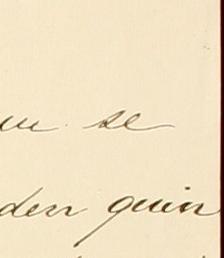 se
den quin